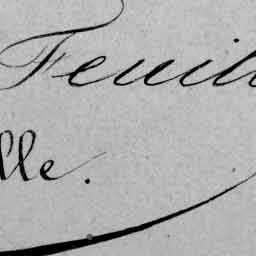 Feuill
lle.